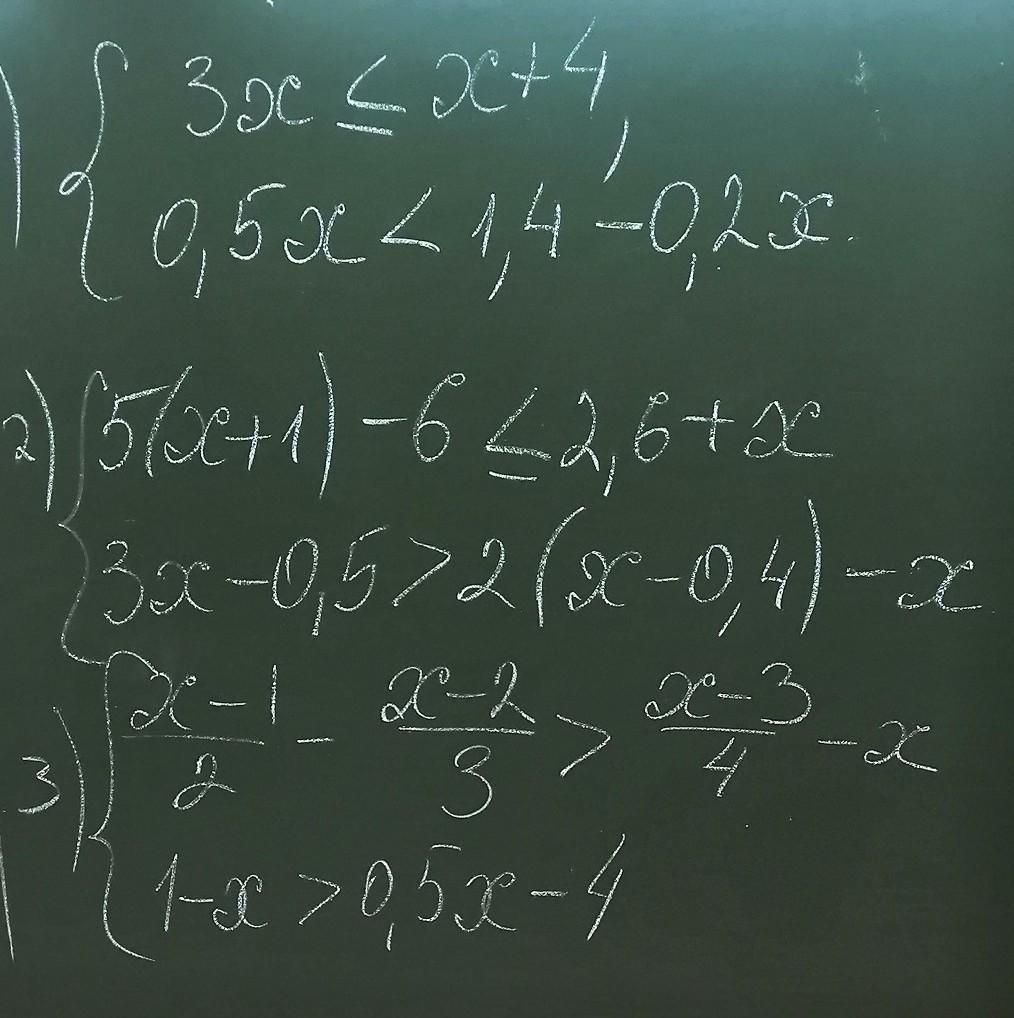 1) { 3x ≤ x+4,
0,5x < 1,4 -0,2x.
2) { 5(x+1) -6 ≤ 2,6+x
3x-0,5 > 2(x-0,4) -x
3) { (x-1)/2 - (x-2)/3 > (x-3)/4 -x
1-x > 0,5x-4